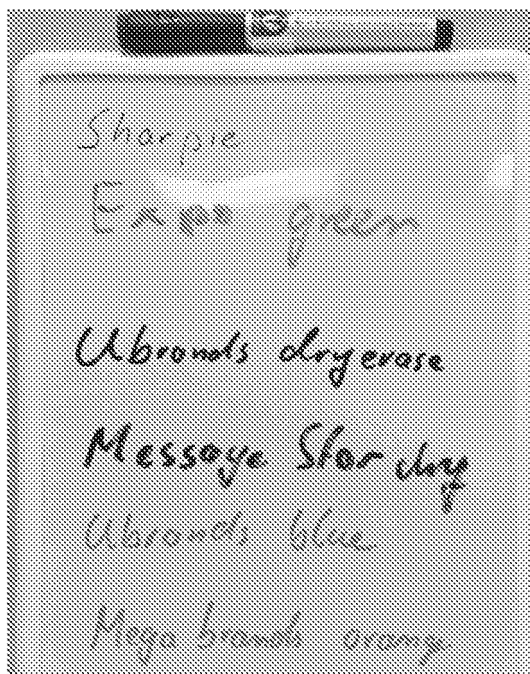 Sharpie
Expo green
Ubrands dry erase
Message Star dry
Ubrands blue
Mega brands orange